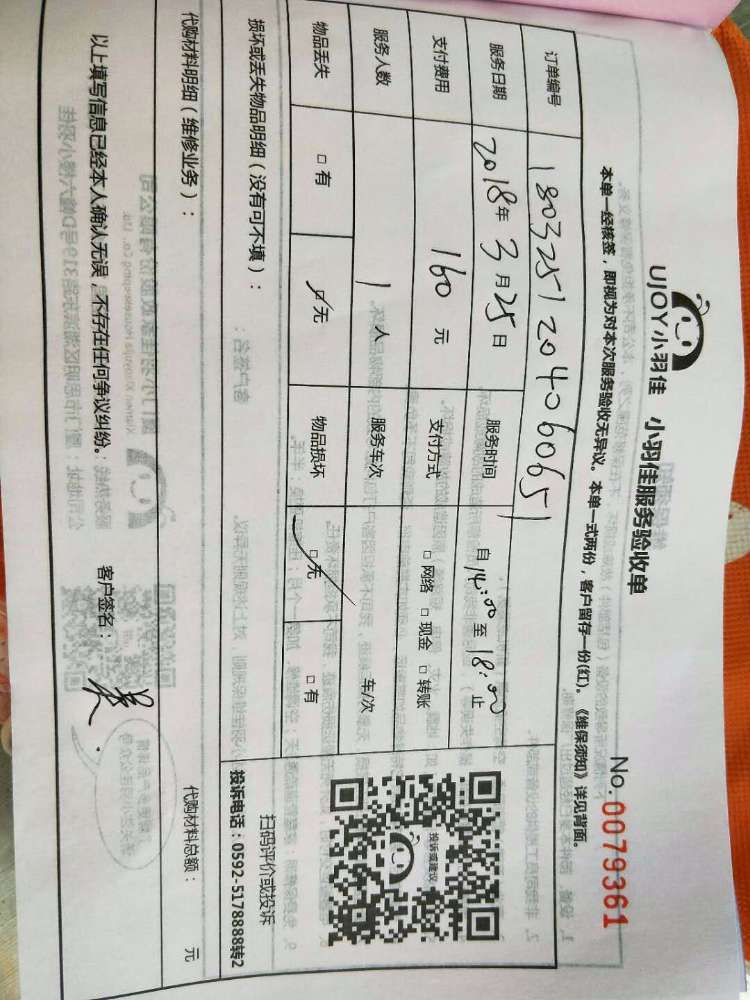 UJOY小羽佳 小羽佳服务验收单
No.0079361
本单一经核签，即视为对本次服务验收无异议。本单一式两份，客户留存一份(红)。《维保须知》详见背面。
订单编号 180325120406065
服务日期 2018年3月25日 服务时间 自14:00至18:00止
支付费用 160元 支付方式 □网络 □现金 □转账
服务人数 1人 服务车次 车/次
物品丢失 □有 ☑无 物品损坏 ☑无 □有
损坏或丢失物品明细（没有可不填）：
投诉或建议
扫码评价或投诉
投诉电话：0592-5178888转2
代购材料明细（维修业务）： 代购材料总额： 元
以上填写信息已经本人确认无误，不存在任何争议纠纷。 客户签名：